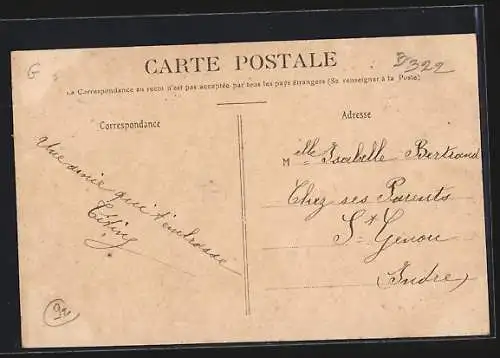 G
CARTE POSTALE
3322
La Correspondance au recto n'est pas acceptée par tous les pays étrangers (Se renseigner à la Poste)
Correspondance
Une amie qui t'embrasse
Adresse
Mlle Isabelle Bertrand
Chez ses Parents
St Genou
(Indre)